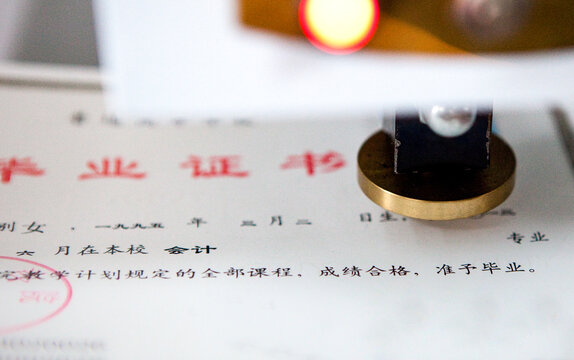 毕业证书
别女，一九九五 年 三月二 日生，
专业
六 月在本校 会计
完教学计划规定的全部课程，成绩合格，准予毕业。